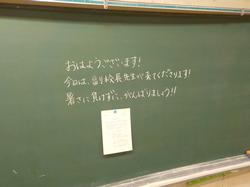 おはようございます!
今日は、副校長先生が来てくださります!
暑さに負けずに、がんばりましょう!!